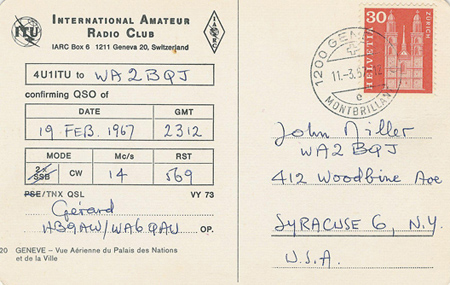 INTERNATIONAL AMATEUR
RADIO CLUB
IARC Box 6 1211 Geneva 20, Switzerland
ITU
IARC
4U1ITU to WA2BQJ
confirming QSO of
DATE GMT
19 FEB. 1967 2312
MODE Mc/s RST
2x SSB CW 14 569
PSE/TNX QSL VY 73
Gérard
HB9AW/WA6QAU OP.
20 GENEVE – Vue Aérienne du Palais des Nations
et de la Ville
1200 GENÈVE
11.-3.
MONTBRILLANT
30
ZÜRICH
HELVETIA
John Miller
WA2BQJ
412 Woodbine Ave
SYRACUSE 6, N.Y.
U.S.A.